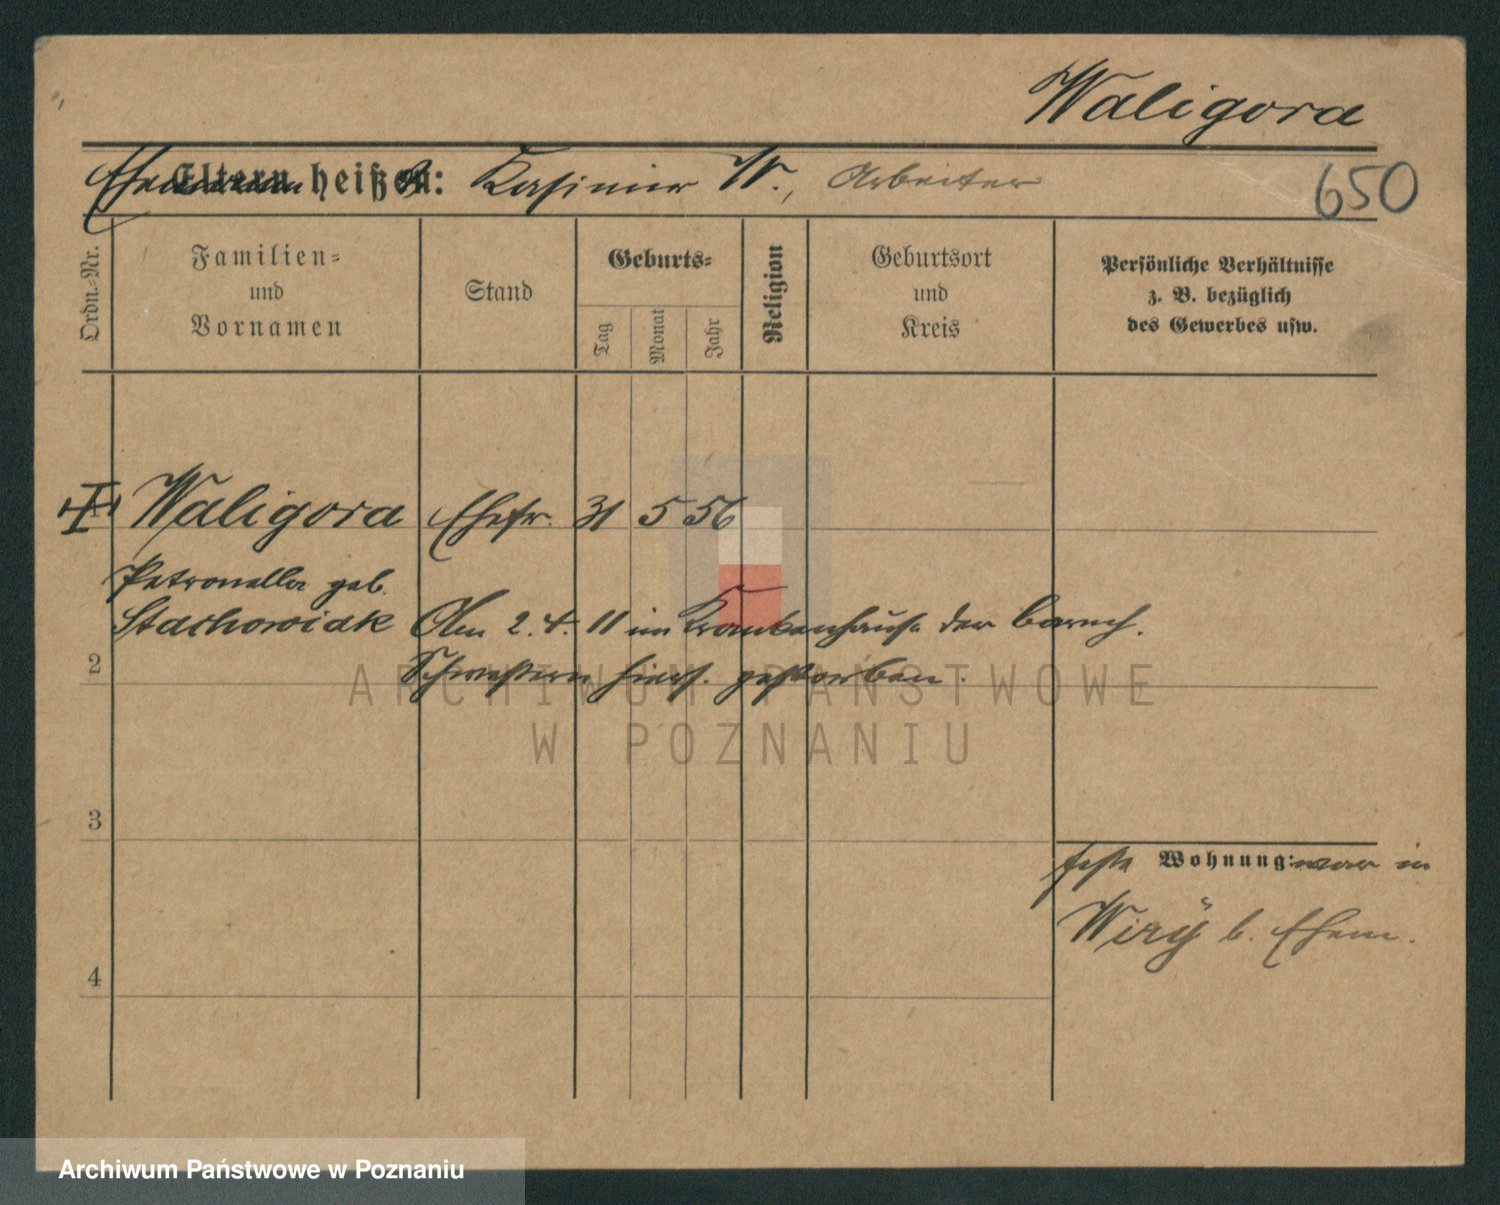 Waligora
Ehemann heißt: Kasimir W., Arbeiter
650
Ordn.-Nr.
Familien-
und
Vornamen
Stand
Geburts-
Tag
Monat
Jahr
Religion
Geburtsort
und
Kreis
Persönliche Verhältnisse
z. B. bezüglich
des Gewerbes usw.
Waligora Ehefr. 31 5 56
Petronella geb.
Stachowiak Am 2. 4. 11 im Krankenhause der barmh.
2
Schwestern hiers. gestorben.
ARCHIWUM PAŃSTWOWE
W POZNANIU
3
feste Wohnung: war in
Wiry b. Ehem.
4
Archiwum Państwowe w Poznaniu